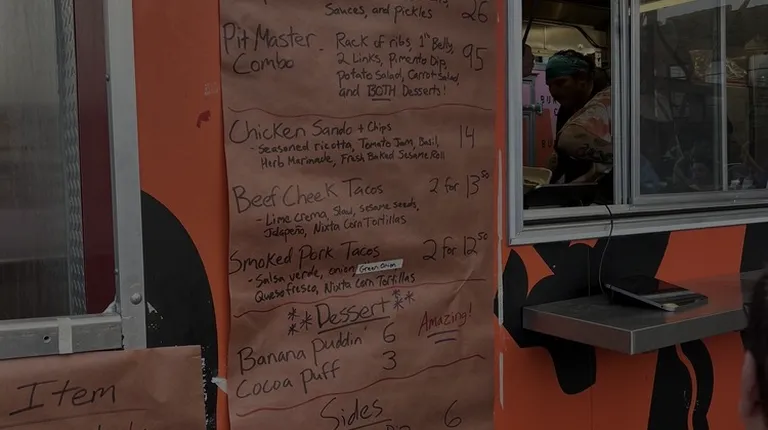 Sauces, and pickles 26
Pit Master Combo - Rack of ribs, 1" Belly, 95
2 Links, Pimento Dip,
Potato Salad, Carrot Salad,
and BOTH Desserts!
Chicken Sando + Chips 14
- Seasoned ricotta, Tomato Jam, Basil,
Herb Marinade, Fresh Baked Sesame Roll
Beef Cheek Tacos 2 for 13 50
- Lime crema, Slaw, sesame seeds,
Jalapeño, Nixta Corn Tortillas
Smoked Pork Tacos 2 for 12 50
- Salsa verde, onion, Green Onion
Queso fresco, Nixta Corn Tortillas
**Dessert**
Banana Puddin' 6 Amazing!
Cocoa Puff 3
Sides 6
Item